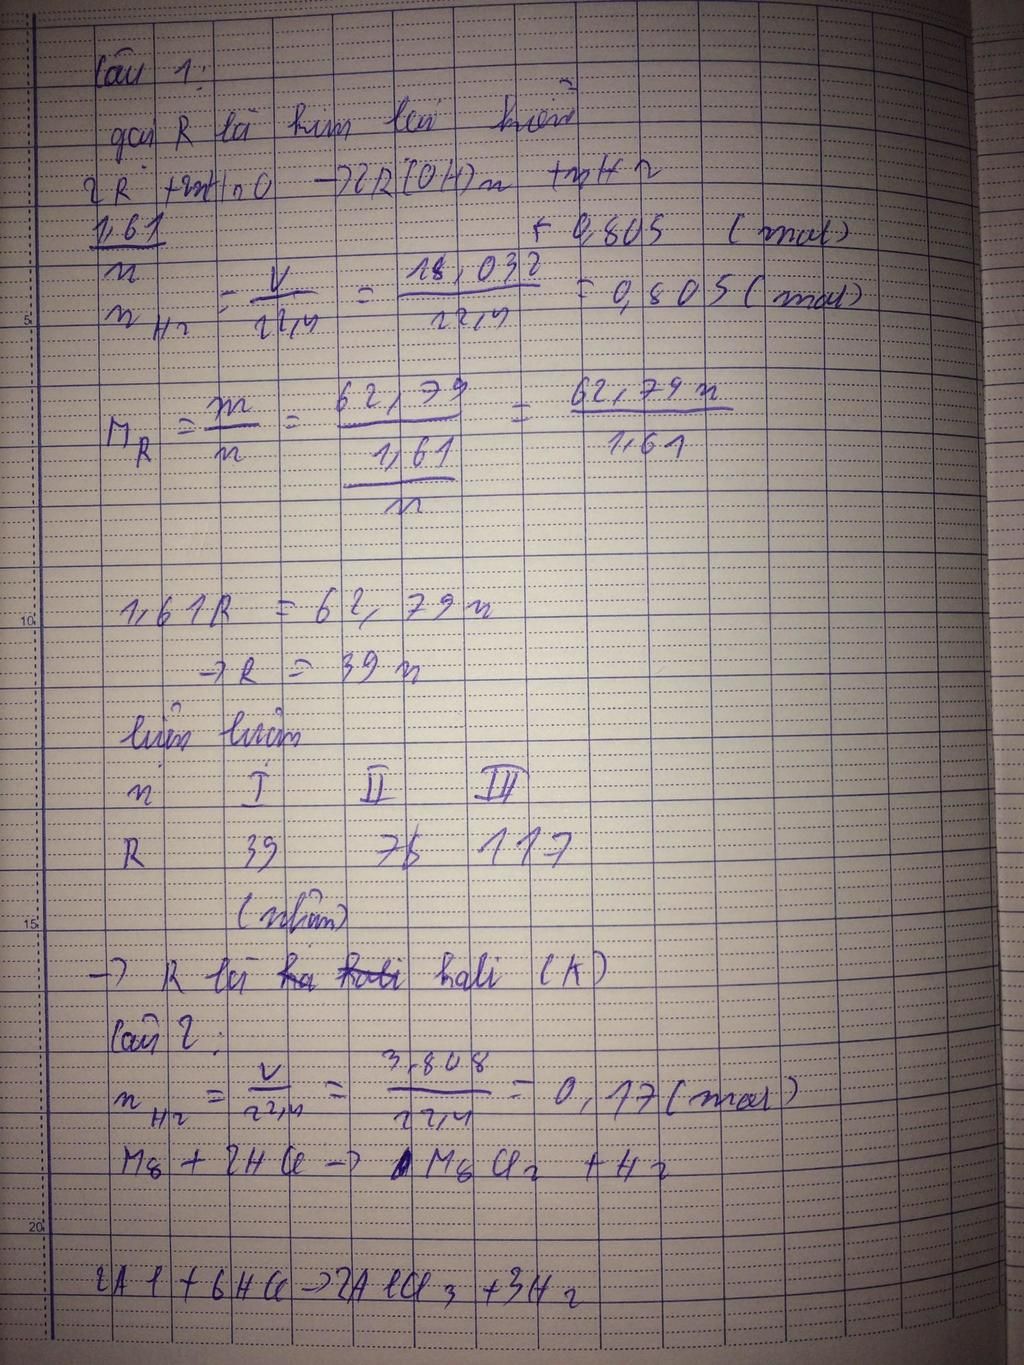 Câu 1:
gọi R là kim loại kiềm
2R + 2nH2O → 2R(OH)n + nH2
1,61/n ← 0,805 (mol)
nH2 = V/22,4 = 18,032/22,4 = 0,805 (mol)
5
MR = m/n = 62,79/(1,61/n) = 62,79n/1,61
1,61R = 62,79n
10
→ R = 39n
biện luận
n I II III
R 39 78 117
(nhận)
15
→ R là kali (K)
Câu 2:
nH2 = V/22,4 = 3,808/22,4 = 0,17 (mol)
Mg + 2HCl → MgCl2 + H2
20
2Al + 6HCl → 2AlCl3 + 3H2